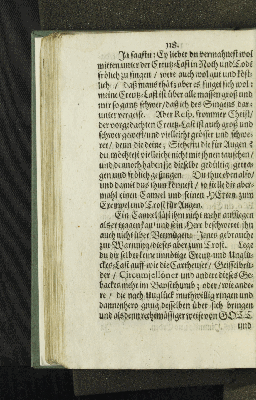 118.
Ja sagstu: Ey lieber du vermahnest wol
mitten unter der Creutz-Last in Noth und Tod
frölich zu singen / were auch wol gut und köst-
lich / daß mans thät; aber es singet sich wol:
meine Creutz-Last ist über alle massen groß und
mir so gantz schwer / daß ich des Singens dar-
unter vergesse. Aber Resp. frommer Christ /
der vorgedachten Creutz-Last ist auch groß und
schwer gewest und vielleicht grösser und schwe-
rer / denn die deine; Siehestu die für Augen
du möchtest vielleicht nicht mit ihnen tauschen /
und dennoch haben sie dieselbe gedültig getra-
gen und frölich gesungen. Du thue eben also /
und damit du es thun könnest / so stelle dir aber-
mahl einen Camel und seinen HErren zum
Exempel und Trost für Augen.
Ein Camel läst ihm nicht mehr aufflegen
als er tragen kan / und sein Herr beschweret ihn
auch nicht über Vermügen: Jenes gebrauche
zur Warnung / dieses aber zum Trost. Lege
du dir selber keine unnötige Creutz- und Unglü-
ckes-Last auff / wie die Cartheuser / Geisselbrü-
der / Circumcelliones und andere dieses Ge-
backes mehr im Bapstthumb; oder / wie ande-
re / die nach Unglück muthwillig ringen und
dannenhero gnug desselben über sich bringen
und als denn rechtmässiger weise von GOTT
und